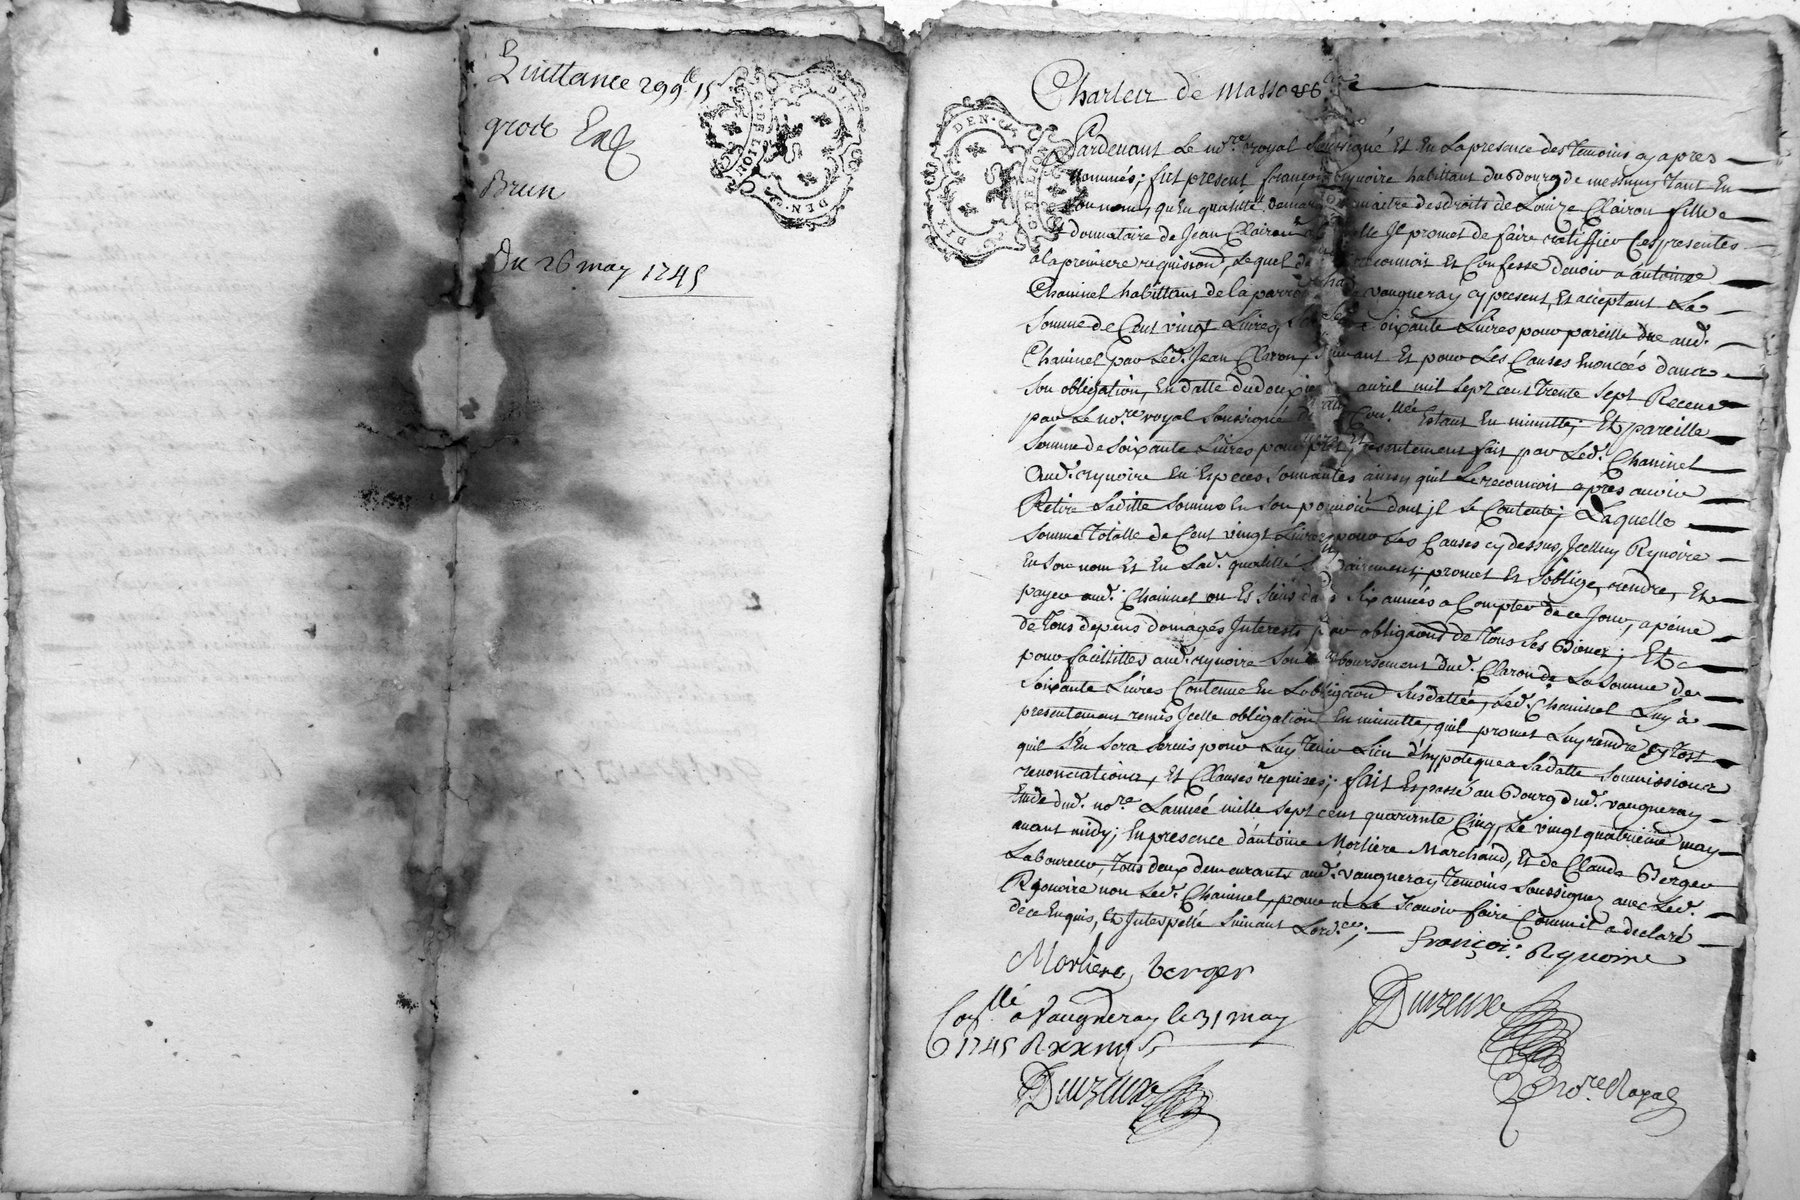 Quittance 299lt 15s
grode
Brun
Du 26 may 1745
GDELION
DIX DEN
Charleir de Masso
DEN
GDELION
DIX DEN
Pardevant Le no.re royal soussigné Et En La presence des temoins cy apres
nommés; fut present françois Rynoire habittant du Bourg de messimy tant En
son nom, qu'En qualitté de mary maitre des droits de Louize Clairon fille
donnataire de Jean Clairon Il promet de faire ratiffier Ces presentes
a la premiere requision, Lequel de reconnoit Et Confesse devoir a antoine
Chaninel habittant de la parroisse de vaugneray cy present, Et acceptant La
somme de Cent vingt Livres, soixante Livres pour pareille due aud.
Chaninel par Led. Jean Claron, suivant Et pour Les Causes Enoncées dans
son obligation, En datte du douzieme avril mil sept cent trente sept Receue
par Le no.re royal soussigné Con.llée Estant En minutte; Et pareille
somme de soixante Livres pour pret presentement fait par Led. Chaninel
aud. rynoire En Especes sonnantes ainsy quil Le reconnoit apres avoir
Retiré Laditte somme En son pouvoir dont jl se Contente; Laquelle
somme Totalle de Cent vingt Livres pour Les Causes cy dessus, Jcelluy Rynoire
En son nom Et En Lad. qualitté solidairement; promet Et s'oblige, rendre, Et
payer aud. Chaninel ou Es siens dans six années a Compter de ce jour, a peine
de tous depens domages Interests par obligaond de tous ses Biens; Et
pour facillitter aud. rynoire son remboursement dud. Claron de La somme de
soixante Livres Contenue En Lobligaond susdattée, Led. Chaninel Luy a
presentement remis Jcelle obligation En minutte, quil promet Luy rendre sy tost
quil s'En sera servis pour Luy tenir Lieu d'hypoteque a sa datte soumissions
renonciations, Et Clauses requises; fait Et passé au Bourg dud. vaugneray
Etude dud. no.re Lanneé mille sept cent quarante Cinq, Le vingt quatrieme may
avant midy; En presence d'antoine Morliere Marchand, Et de Claude Berger
Laboureur, tous deux demeurants aud. vaugneray temoins soussignez avec Led.
Rynoire non Led. Chaninel, pour ne Le scavoir faire Comm'il a declaré
de ce Enquis, Et Interpellé suivant Lord.ce;
françois Rynoire
Morliere berger
Con.llé a Vaugneray le 31 may
1745
no.re Royal